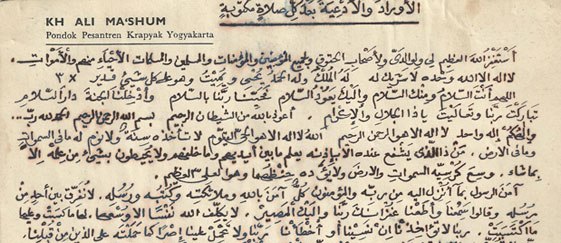 الأوراد والأدعية بعد كل صلاة مكتوبة
KH ALI MA'SHUM
Pondok Pesantren Krapyak Yogyakarta
أستغفر الله العظيم لي ولوالدي ولأصحاب الحقوق ولجميع المؤمنين والمؤمنات والمسلمين والمسلمات الأحياء منهم والأموات
لا اله الا الله وحده لا شريك له له الملك وله الحمد يحيي ويميت وهو على كل شيئ قدير x ٣
اللهم أنت السلام ومنك السلام وإليك يعود السلام فحينا ربنا بالسلام وأدخلنا الجنة دار السلام
تباركت ربنا وتعاليت يا ذا الجلال والإكرام. أعوذ بالله من الشيطان الرجيم بسم الله الرحمن الرحيم الحمد لله رب...
وإلهكم إله واحد لا اله الا هو الرحمن الرحيم الله لا اله الا هو الحي القيوم لا تأخذه سنة ولا نوم له ما في السموات
وما في الأرض. من ذا الذي يشفع عنده الا بإذنه يعلم ما بين أيديهم وما خلفهم ولا يحيطون بشيئ من علمه الا
بما شاء. وسع كرسيه السموات والارض ولا يؤده حفظهما وهو العلي العظيم
آمن الرسول بما أنزل اليه من ربه والمؤمنون كل آمن بالله وملائكته وكتبه ورسله. لا نفرق بين أحد من
رسله وقالوا سمعنا وأطعنا غفرانك ربنا وإليك المصير. لا يكلف الله نفسا الا وسعها لها ما كسبت وعليها
ما اكتسبت ربنا لا تؤاخذنا ان نسينا أو أخطأنا ربنا ولا تحمل علينا إصرا كما حملته على الذين من قبلنا